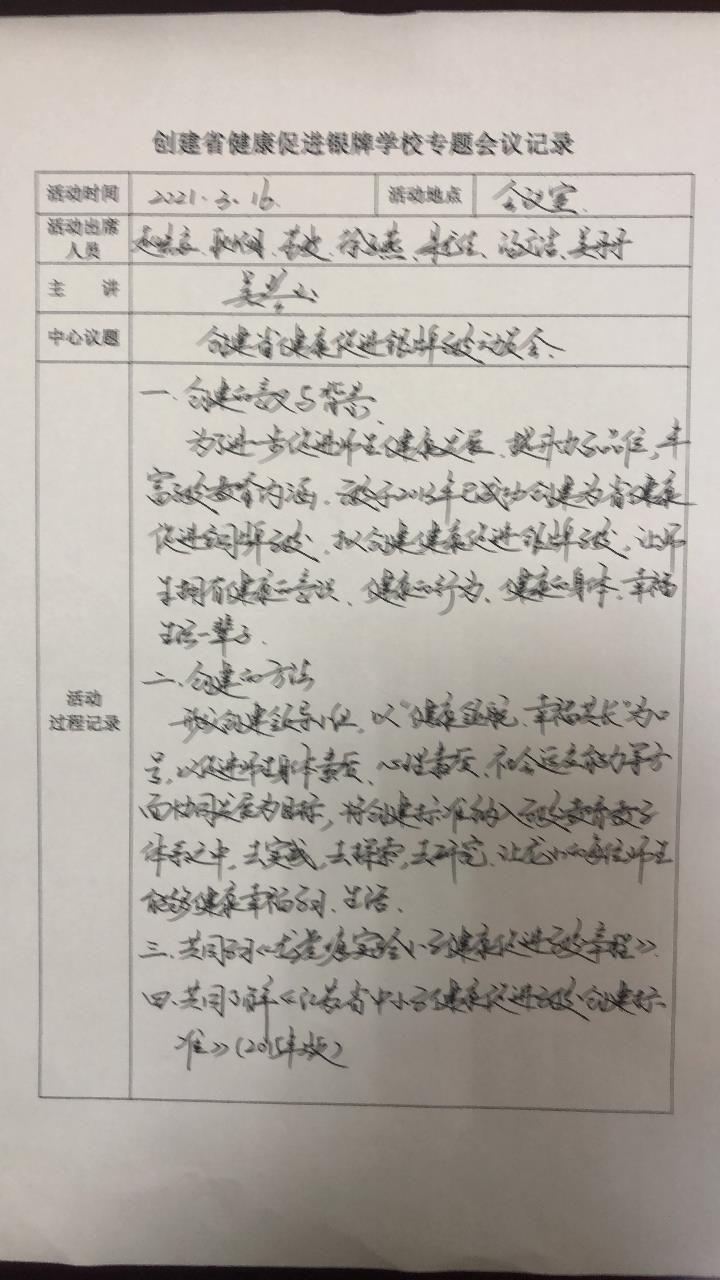 创建省健康促进银牌学校专题会议记录
活动时间 2021.3.16. 活动地点 会议室.
活动出席
人员 徐玉燕、吴丹丹
主 讲 吴
中心议题 创建省健康促进银牌学校动员会.
一.创建的意义与背景.
为了进一步促进师生健康发展、提升办学品位,丰
富学校教育内涵.学校于2013年已成功创建为省健康
促进铜牌学校、拟创建健康促进银牌学校,让师
生拥有健康的意识、健康的行为、健康的身体、幸福
生活一辈子.
二.创建的方法
活动
过程记录
形成创建领导小组,以“健康 、幸福共长”为口
号,以促进师生身体素质、心理素质、社会适应能力等方
面协同发展为目标,将创建标准纳入学校教育教学
体系之中,去实践,去探索,去研究,让龙小的每位师生
能够健康幸福学习、生活.
三.共同学习《龙 实验小学健康促进学校章程》.
四.共同了解《江苏省中小学健康促进学校创建标
准》(2015年版)